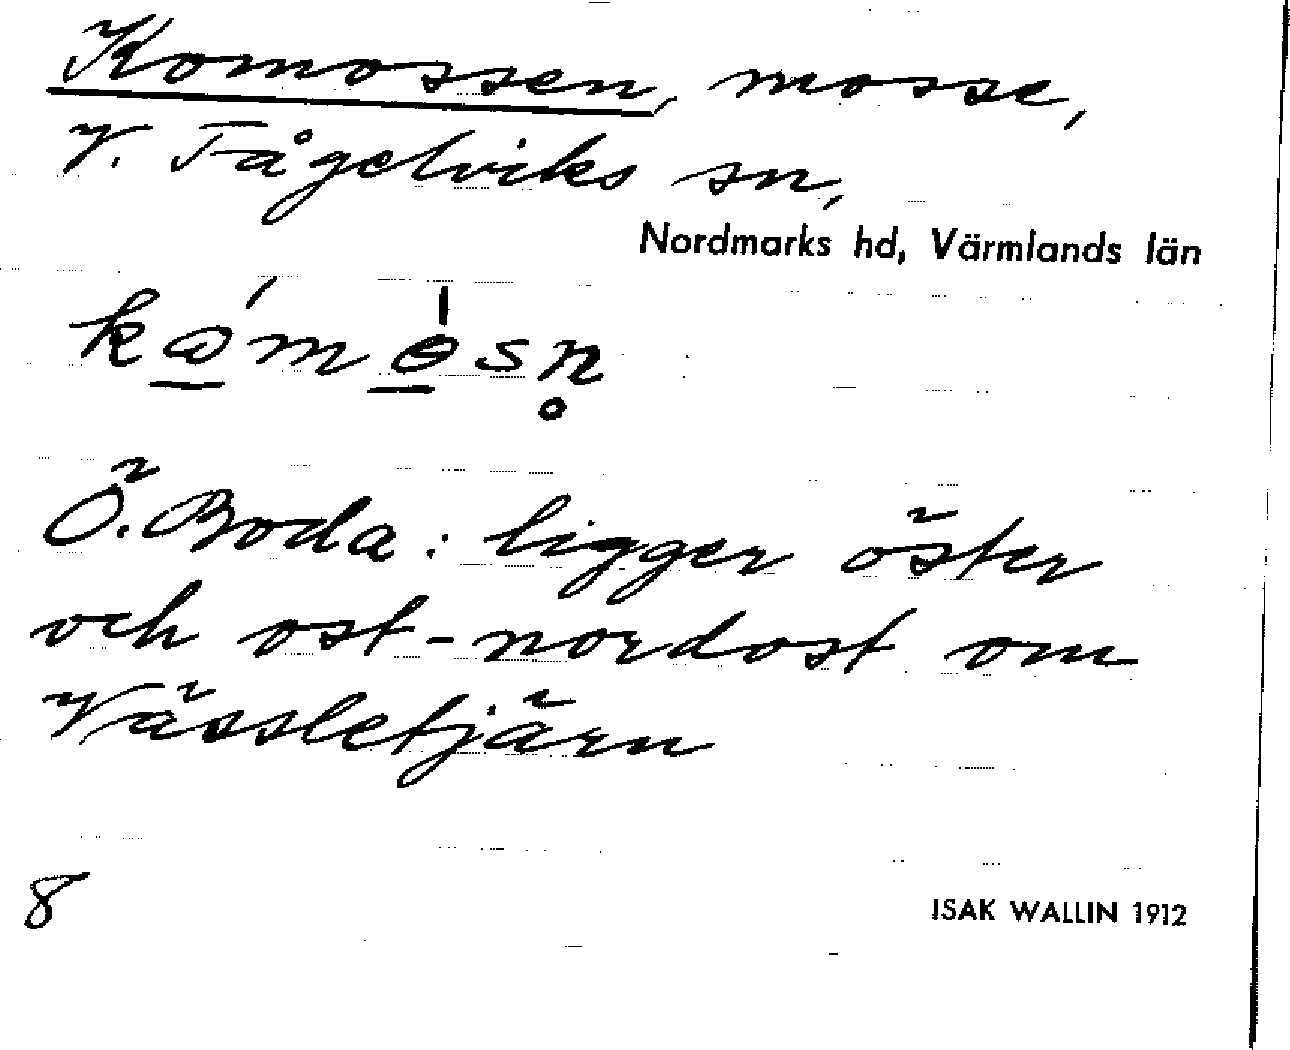 Komossen, mosse,
V. Fågelviks sn,
Nordmarks hd, Värmlands län
Ö. Boda: ligger öster
och ost-nordost om
Vässletjärn
8
ISAK WALLIN 1912